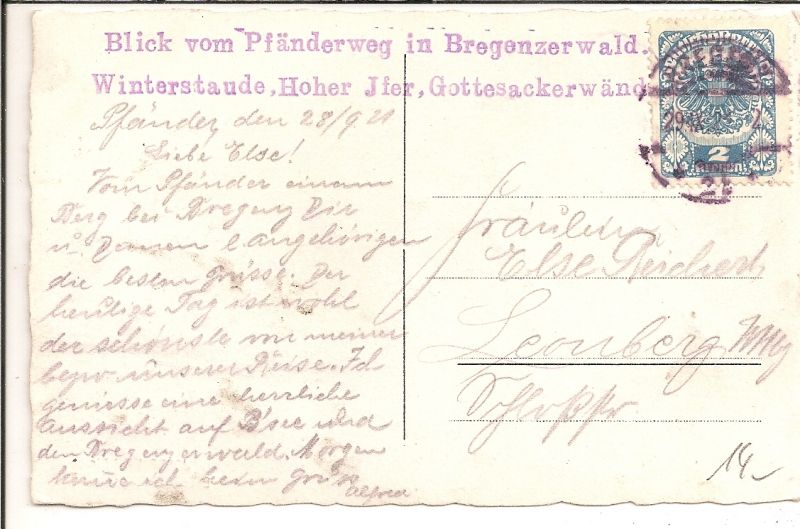 Blick vom Pfänderweg in Bregenzerwald.
Winterstaude, Hoher Jfer, Gottesackerwänd
Pfänder, den 28/9 21
Liebe Else!
Vom Pfänder einem
Berg bei Bregenz Dir
u. Deinen l. angehörigen
die besten Grüsse. Der
heutige Tag ist wohl
der schönste von meiner
bezw. unserer Reise. Ich
geniesse eine herrliche
Aussicht auf B'see und
den Bregenzerwald. Morgen
komme ich heim Gruss
Alfred
2
Kronen
29
21
Fräulein
Else Reichert
Leonberg Wttbg
Schloßstr
14.-